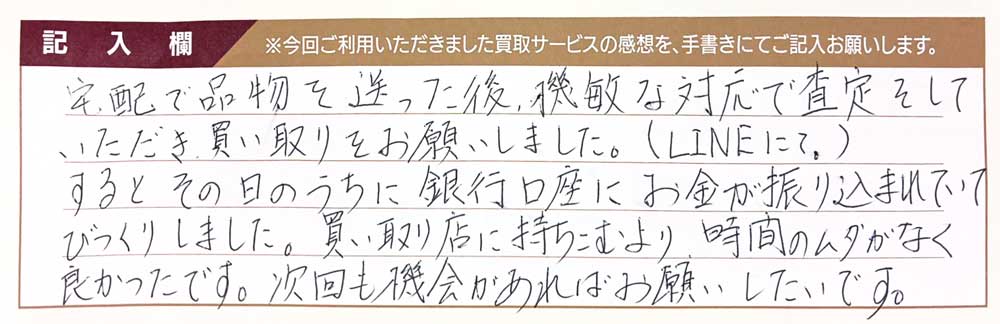 記入欄
※今回ご利用いただきました買取サービスの感想を、手書きにてご記入お願いします。
宅配で品物を送った後、機敏な対応で査定そして
いただき、買い取りをお願いしました。(LINEにて。)
するとその日のうちに銀行口座にお金が振り込まれていて
びっくりしました。買い取り店に持ちこむより、時間のムダがなく
良かったです。次回も機会があればお願いしたいです。